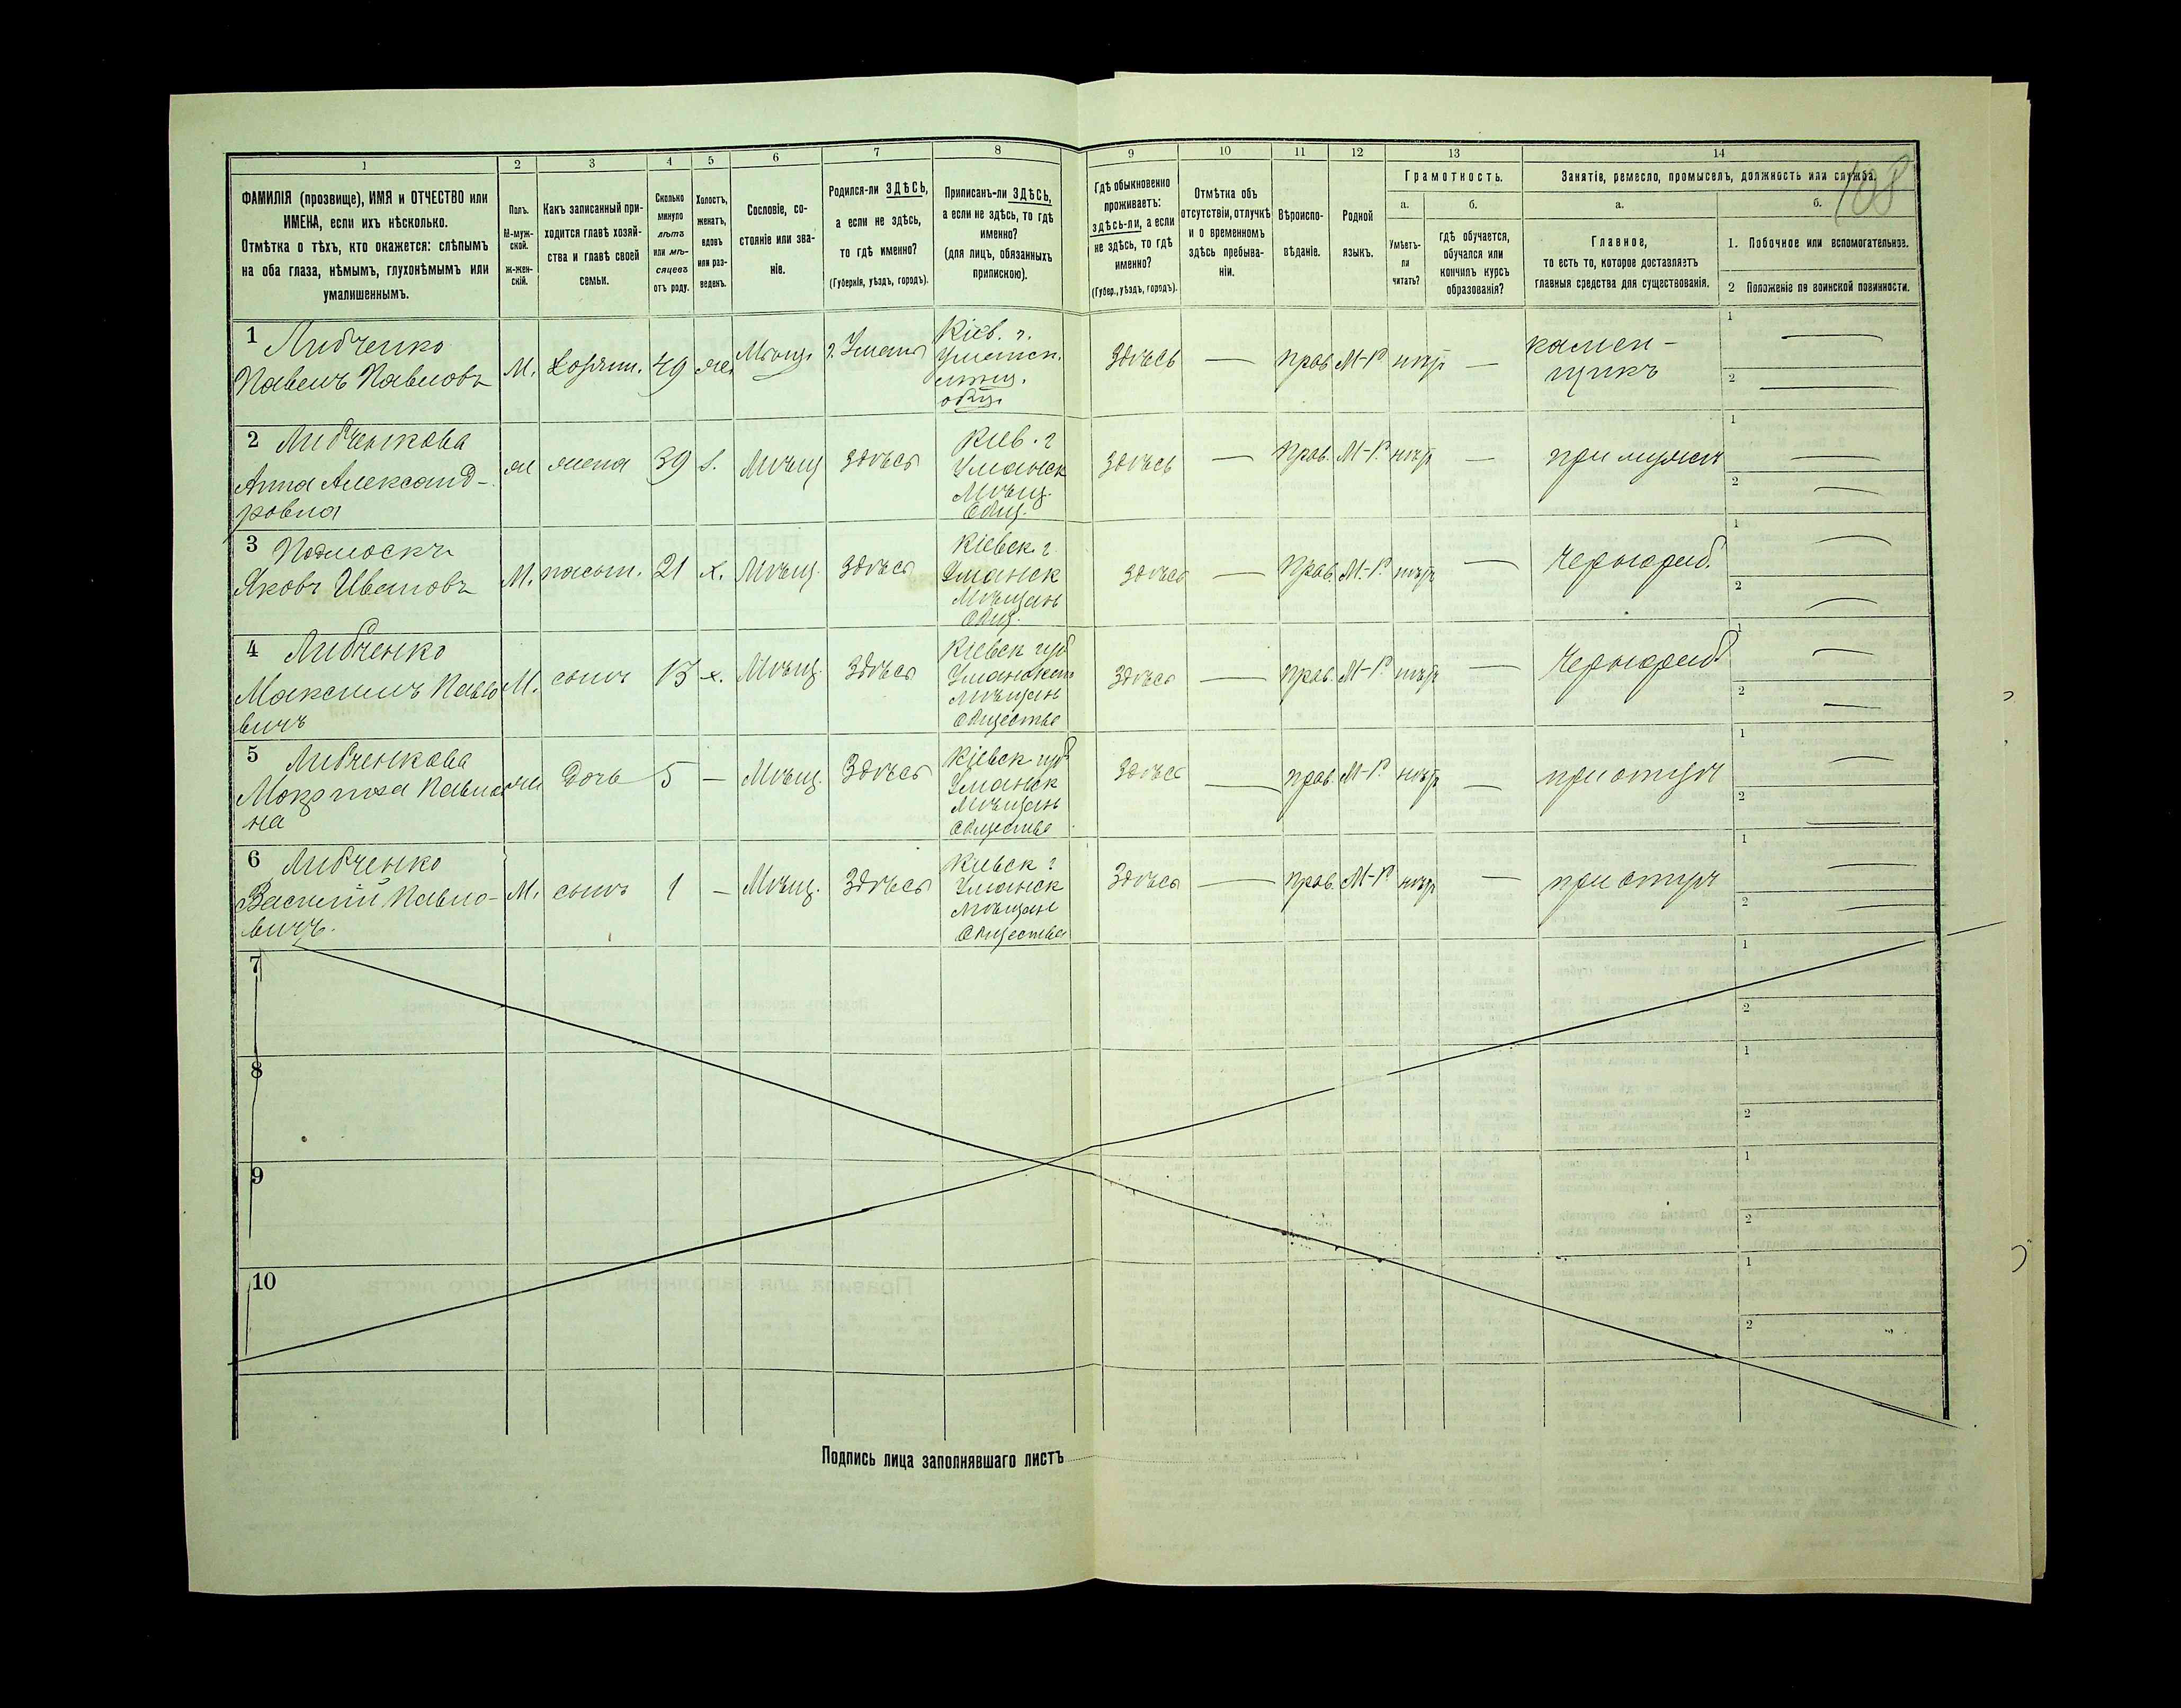 108
1 2 3 4 5 6 7 8 9 10 11 12 13 14
ФАМИЛІЯ (прозвище), ИМЯ и ОТЧЕСТВО или
ИМЕНА, если ихъ нѣсколько.
Отмѣтка о тѣхъ, кто окажется: слѣпымъ
на оба глаза, нѣмымъ, глухонѣмымъ или
умалишеннымъ.
Полъ.
М-муж-
ской.
ж-жен-
скій.
Какъ записанный при-
ходится главѣ хозяй-
ства и главѣ своей
семьи.
Сколько
минуло
лѣтъ
или мѣ-
сяцевъ
отъ роду.
Холостъ,
женатъ,
вдовъ
или раз-
веденъ.
Сословіе, со-
стояніе или зва-
ніе.
Родился-ли ЗДѢСЬ,
а если не здѣсь,
то гдѣ именно?
(Губернія, уѣздъ, городъ).
Приписанъ-ли ЗДѢСЬ,
а если не здѣсь, то гдѣ
именно?
(для лицъ, обязанныхъ
припискою).
Гдѣ обыкновенно
проживаетъ:
здѣсь-ли, а если
не здѣсь, то гдѣ
именно?
(Губер., уѣздъ, городъ).
Отмѣтка объ
отсутствіи, отлучкѣ
и о временномъ
здѣсь пребыва-
ніи.
Вѣроиспо-
вѣданіе.
Родной
языкъ.
Грамотность.
а.
Умѣетъ-
ли
читать?
б.
гдѣ обучается,
обучался или
кончилъ курсъ
образованія?
Занятіе, ремесло, промыселъ, должность или служба.
а.
Главное,
то есть то, которое доставляетъ
главныя средства для существованія.
б.
1. Побочное или вспомогательное.
2 Положеніе по воинской повинности.
1 Либченко
Павелъ Павловъ
М. Хозяин. 49 же. Мѣщ. г. Умань
Кіев. г.
Уманск.
мѣщ.
общ.
здѣсь — прав М-Р нѣтъ —
камен-
щикъ
1 —
2 —
2 Либченкова
Анна Александ-
ровна
ж жена 39 з. Мѣщ здѣсь
Кіев. г
Уманск
Мѣщ.
Общ.
здѣсь — Прав. М-Р. нѣтъ — при мужѣ
1 —
2 —
3
Яковъ Ивановъ
М. пасын. 21 х. Мѣщ. здѣсь
Кіевск. г
Уманск
Мѣщан
Общ.
здѣсь — Прав. М-Р. нѣтъ — Чернораб.
1 —
2 —
4 Либченко
Максимъ Павло
вичъ
М. сынъ 13 х. Мѣщ. здѣсь
Кіевск губ
Уманском
мѣщан
Обществе
здѣсь — прав. М-Р. нѣтъ — Чернораб
1 —
2 —
5 Либченкова
Мокрина Павлов
на
ж дочь 5 — Мѣщ. здѣсь
Кіевск губ
Уманск
мѣщан
Обществе
здѣсь — прав. М-Р. нѣтъ — при отцѣ
1 —
2 —
6 Либченко
Василій Павло-
вичъ.
М. сынъ 1 — Мѣщ. здѣсь
Кіевск г
Уманск
мѣщан
Общества
здѣсь — прав. М-Р нѣтъ — при отцѣ
1 —
2 —
7
1
2
8
1
2
9
1
2
10
1
2
Подпись лица заполнявшаго листъ